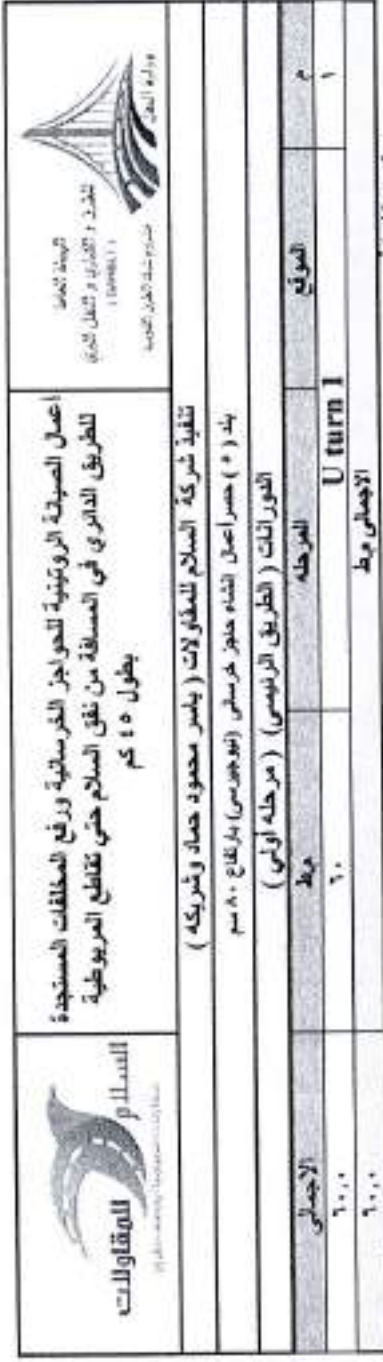 وزارة النقل
الهيئة العامة
للطرق و الكبارى و النقل البرى
( GARBLT )
اعمال الصيانة الروتينية للحواجز الخرسانية ورفع المخلفات المستجدة
للطريق الدائري في المسافة من نفق السلام حتى تقاطع المريوطية
بطول ٤٥ كم
السلام
للمقاولات
تنفيذ شركة السلام للمقاولات ( ياسر محمود حماد وشريكه )
بند ( ٥ ) حصر اعمال انشاء حاجز خرساني (نيوجيرسى) بارتفاع ٨٠ سم
الدورانات ( الطريق الرئيسى ) ( مرحله أولي )
م الموقع المرحله م.ط الاجمالى
١ U turn 1 ٦٠ ٦٠,٠
الاجمالى م.ط ٦٠,٠